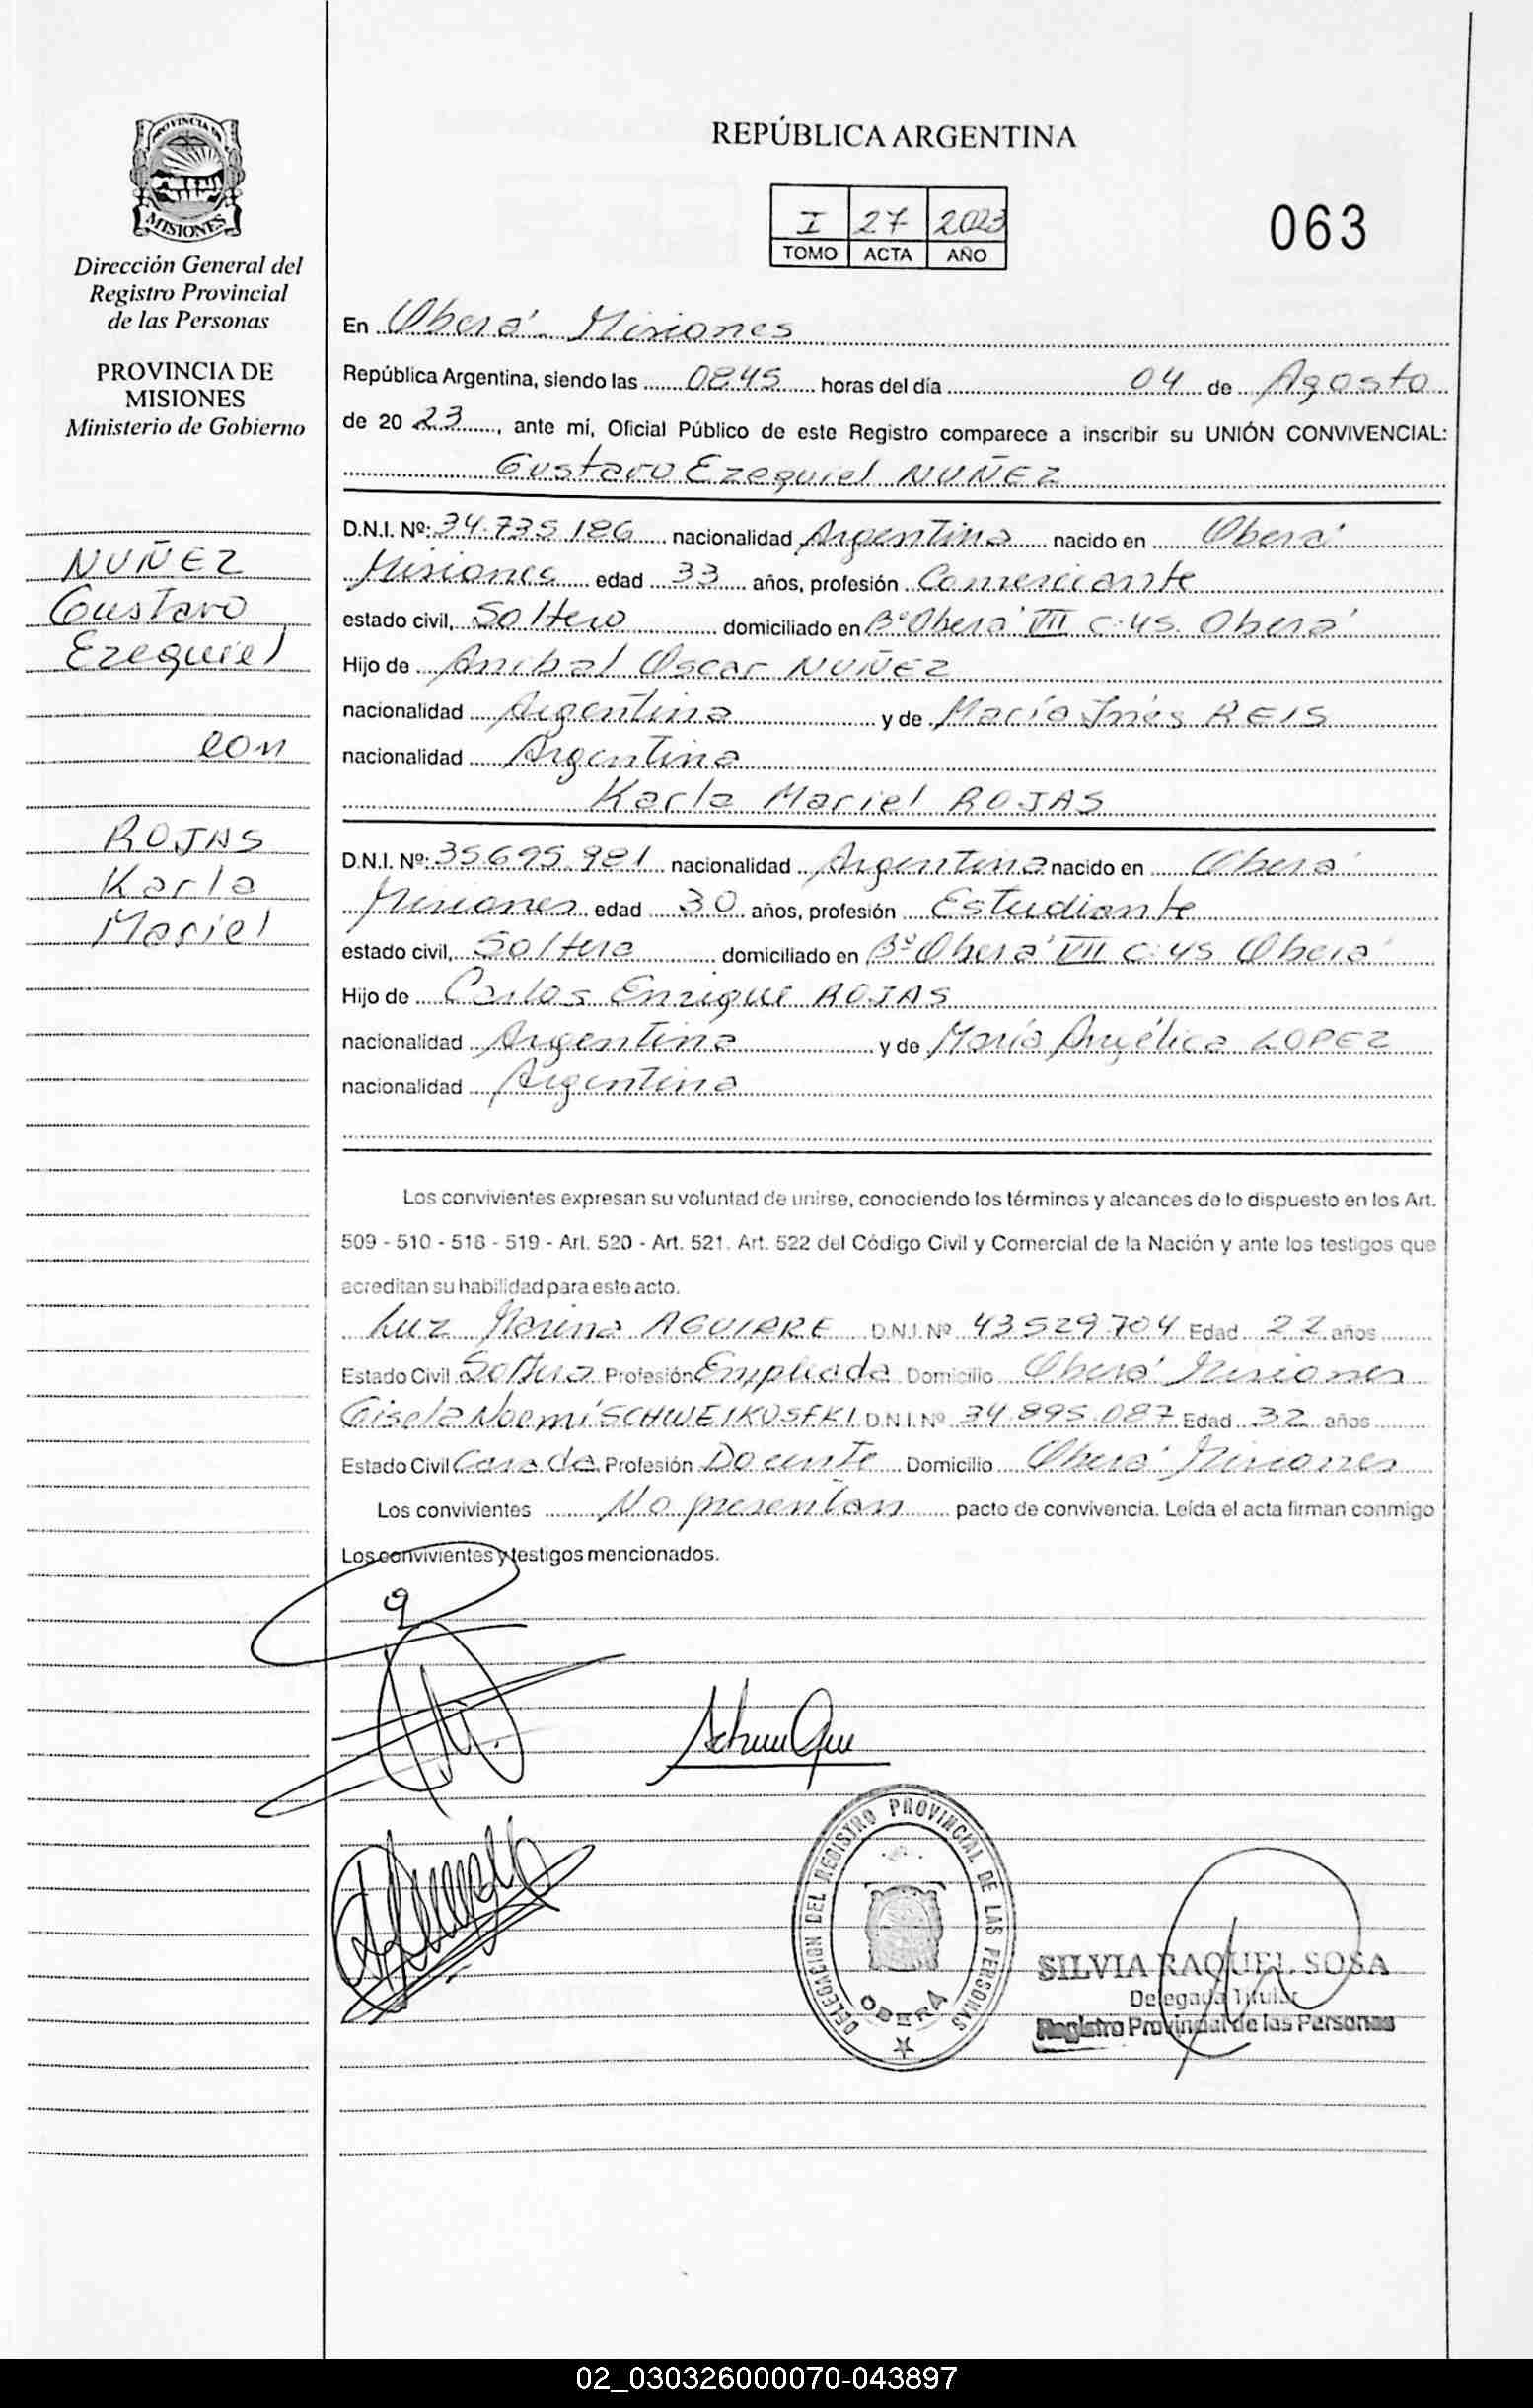 PROVINCIA DE
MISIONES
Dirección General del
Registro Provincial
de las Personas
PROVINCIA DE
MISIONES
Ministerio de Gobierno
NUÑEZ
Gustavo
Ezequiel
con
ROJAS
Karla
Mariel
REPÚBLICA ARGENTINA
I 27 2023
TOMO ACTA AÑO
063
En Oberá Misiones
República Argentina, siendo las 0845 horas del día 04 de Agosto
de 20 23, ante mí, Oficial Público de este Registro comparece a inscribir su UNIÓN CONVIVENCIAL:
Gustavo Ezequiel NUÑEZ
D.N.I. Nº: 34.735.186 nacionalidad Argentina nacido en Oberá
Misiones edad 33 años, profesión Comerciante
estado civil, Soltero domiciliado en Bº Oberá VII C:45. Oberá
Hijo de Anibal Oscar NUÑEZ
nacionalidad Argentina y de María Inés REIS
nacionalidad Argentina
Karla Mariel ROJAS
D.N.I. Nº: 35.695.981 nacionalidad Argentina nacido en Oberá
Misiones edad 30 años, profesión Estudiante
estado civil, Soltera domiciliado en Bº Oberá VII C:45 Oberá
Hijo de Carlos Enrique ROJAS
nacionalidad Argentina y de María Angélica LOPEZ
nacionalidad Argentina
Los convivientes expresan su voluntad de unirse, conociendo los términos y alcances de lo dispuesto en los Art.
509 - 510 - 518 - 519 - Art. 520 - Art. 521. Art. 522 del Código Civil y Comercial de la Nación y ante los testigos que
acreditan su habilidad para este acto.
Luz Marina AGUIRRE D.N.I. Nº 43.529.704 Edad 22 años
Estado Civil Soltera Profesión Empleada Domicilio Oberá Misiones
Gisela Noemí SCHWEIKOSFKI D.N.I. Nº 34.895.087 Edad 32 años
Estado Civil Casada Profesión Docente Domicilio Oberá Misiones
Los convivientes No presentan pacto de convivencia. Leída el acta firman conmigo
Los convivientes y testigos mencionados.
DELEGACION DEL REGISTRO PROVINCIAL DE LAS PERSONAS
OBERA
SILVIA RAQUEL SOSA
Delegada Titular
Registro Provincial de las Personas
02_030326000070-043897